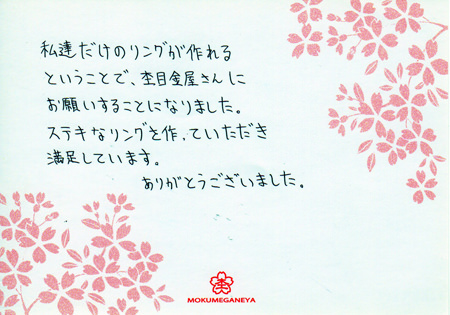 私達だけのリングが作れる
ということで、杢目金屋さんに
お願いすることになりました。
ステキなリングを作っていただき
満足しています。
ありがとうございました。
杢
MOKUMEGANEYA